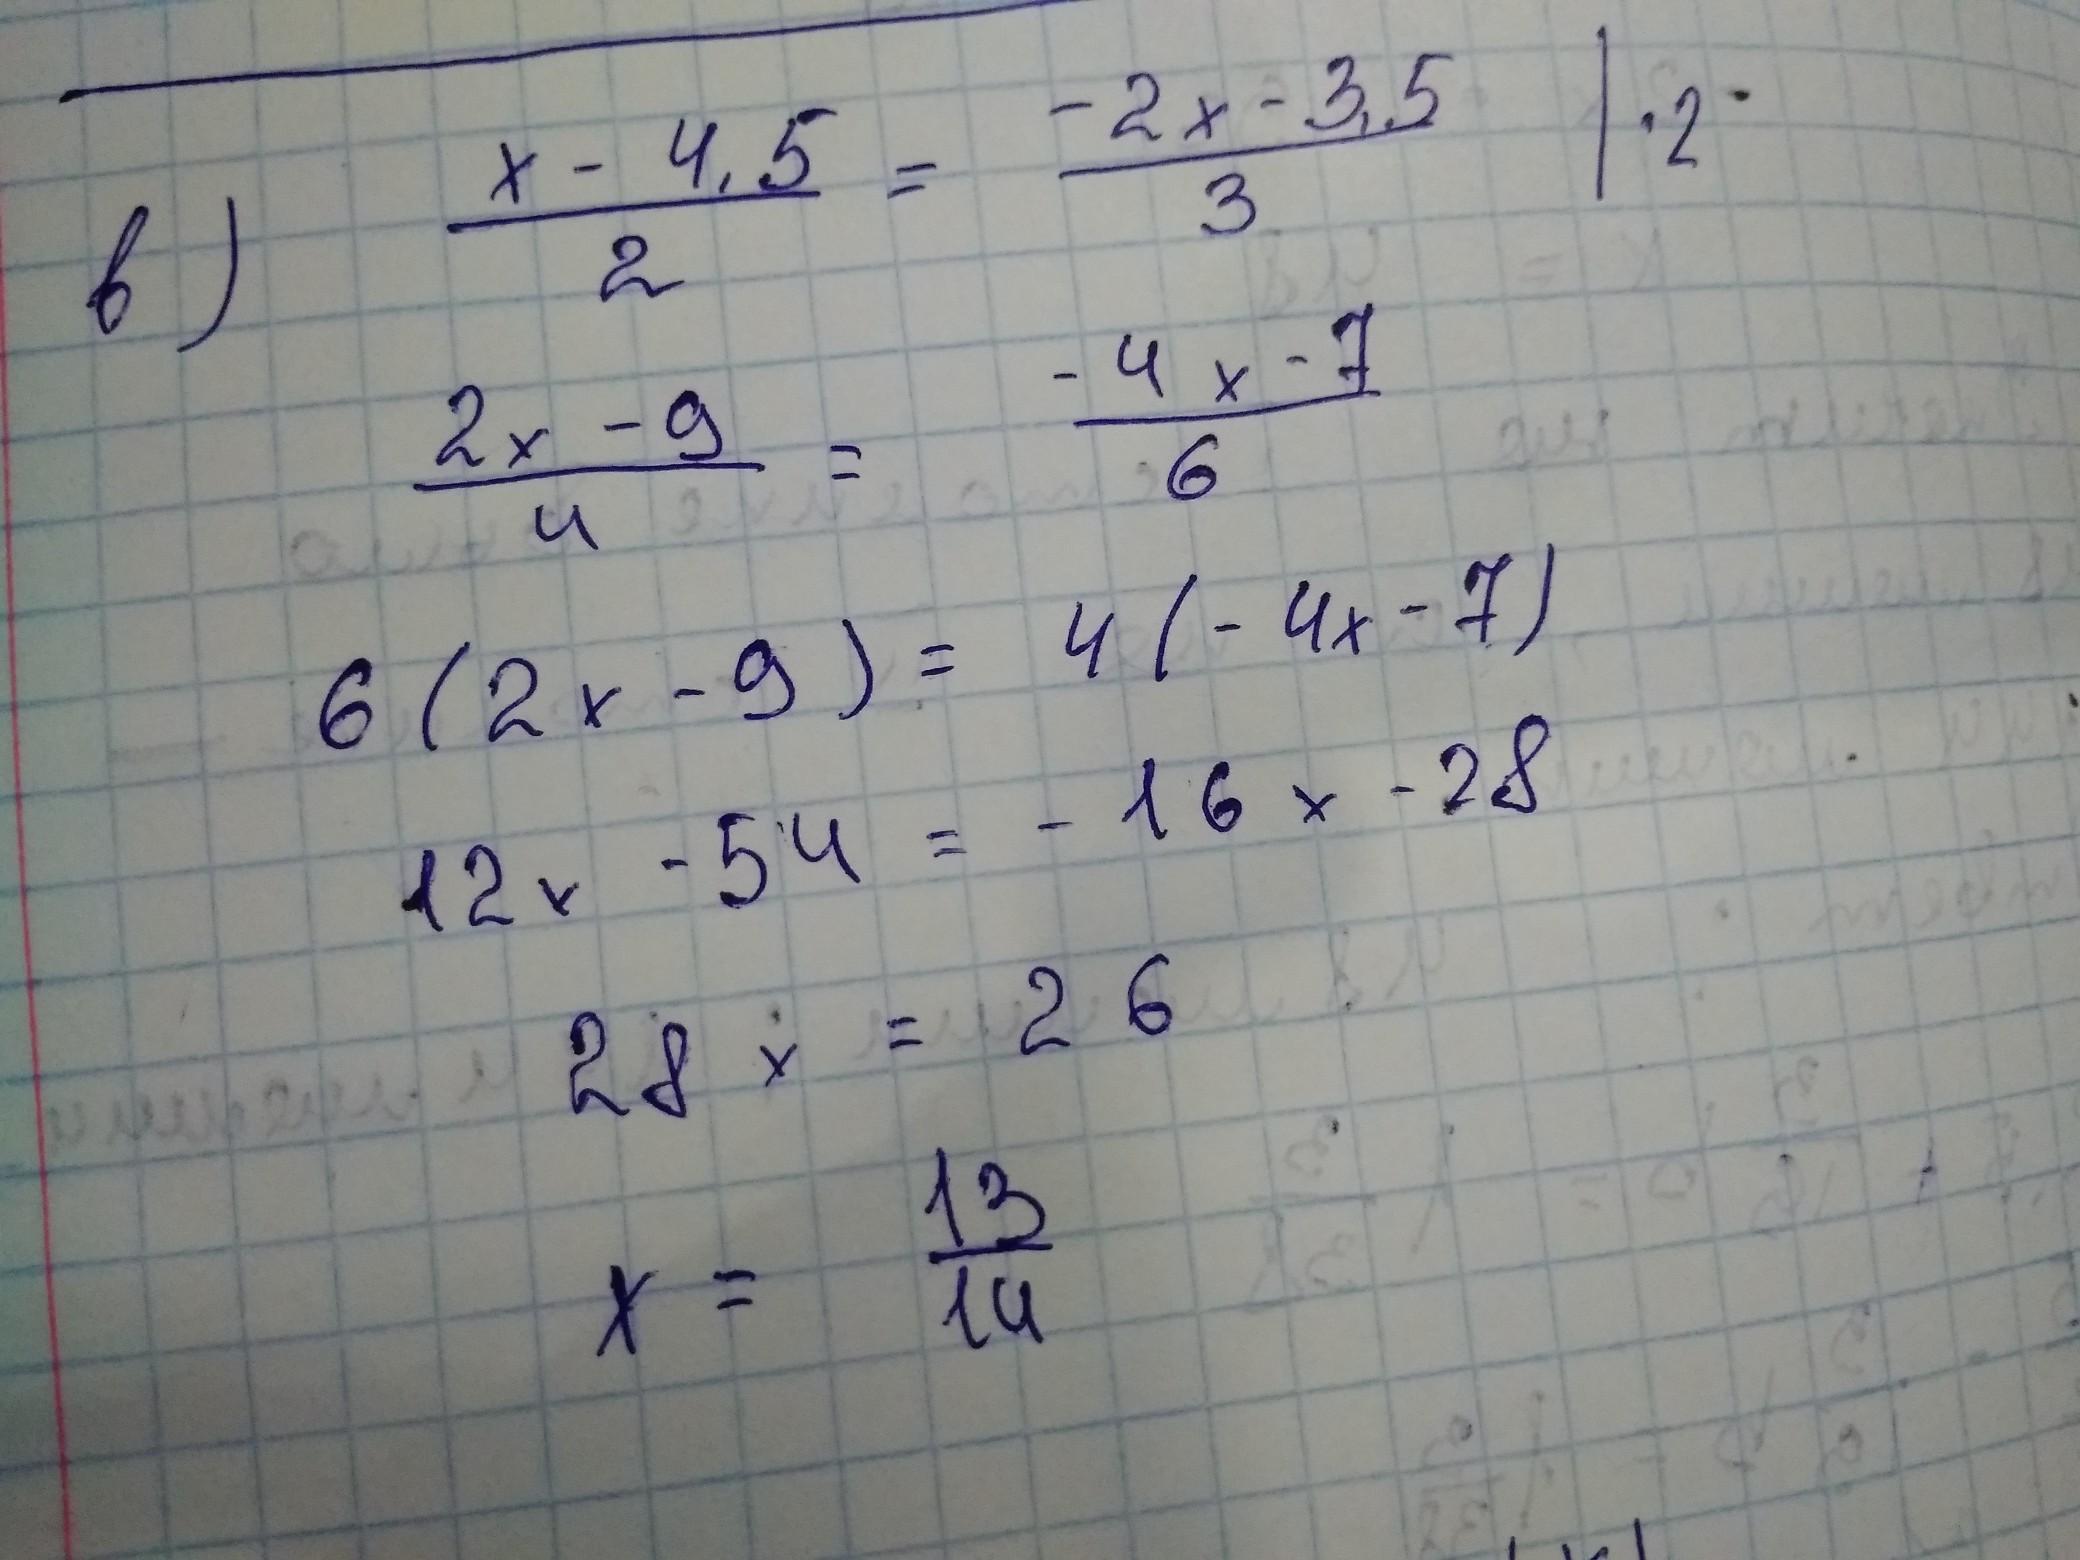 в) x - 4,5 / 2 = -2x - 3,5 / 3 | ·2
2x - 9 / 4 = -4x - 7 / 6
6(2x - 9) = 4(-4x - 7)
12x - 54 = -16x - 28
28x = 26
x = 13/14